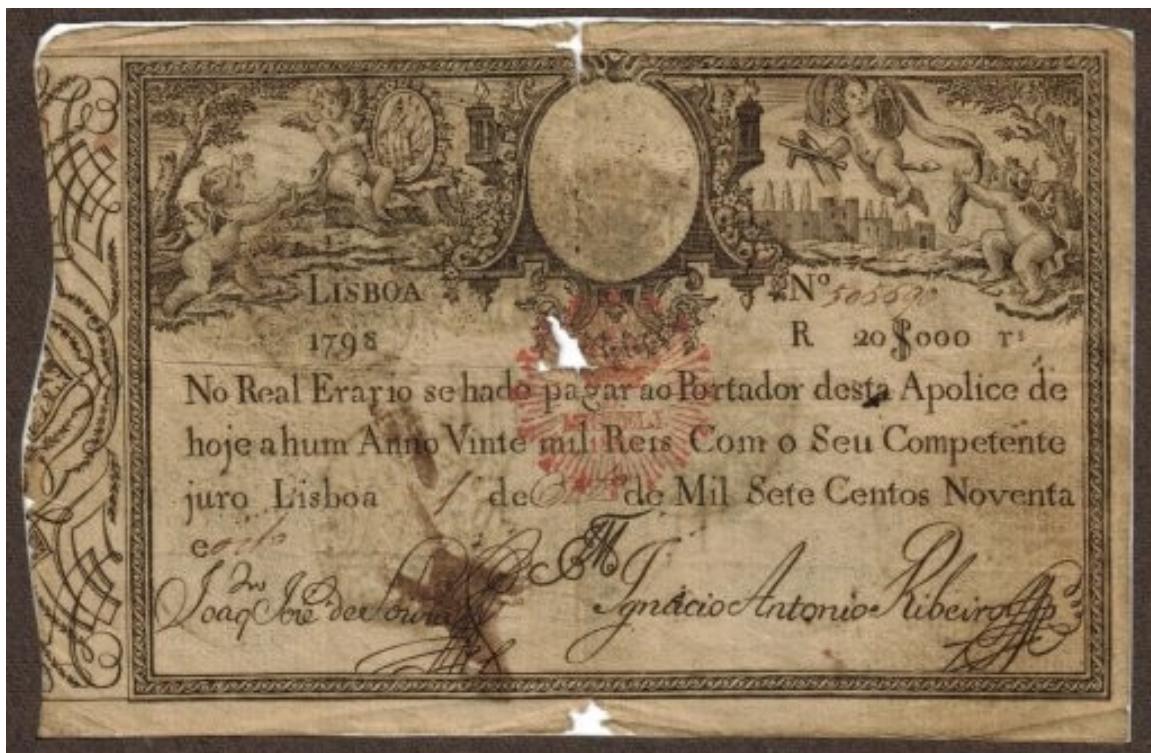 LISBOA
Nº
1798
R 20$000 rˢ
No Real Erario se hade pagar ao Portador desta Apolice de
hoje a hum Anno Vinte mil Reis Com o Seu Competente
juro Lisboa 1 de de Mil Sete Centos Noventa
e oito
Joaqᵐ José de Souza
Ignácio Antonio Ribeiro